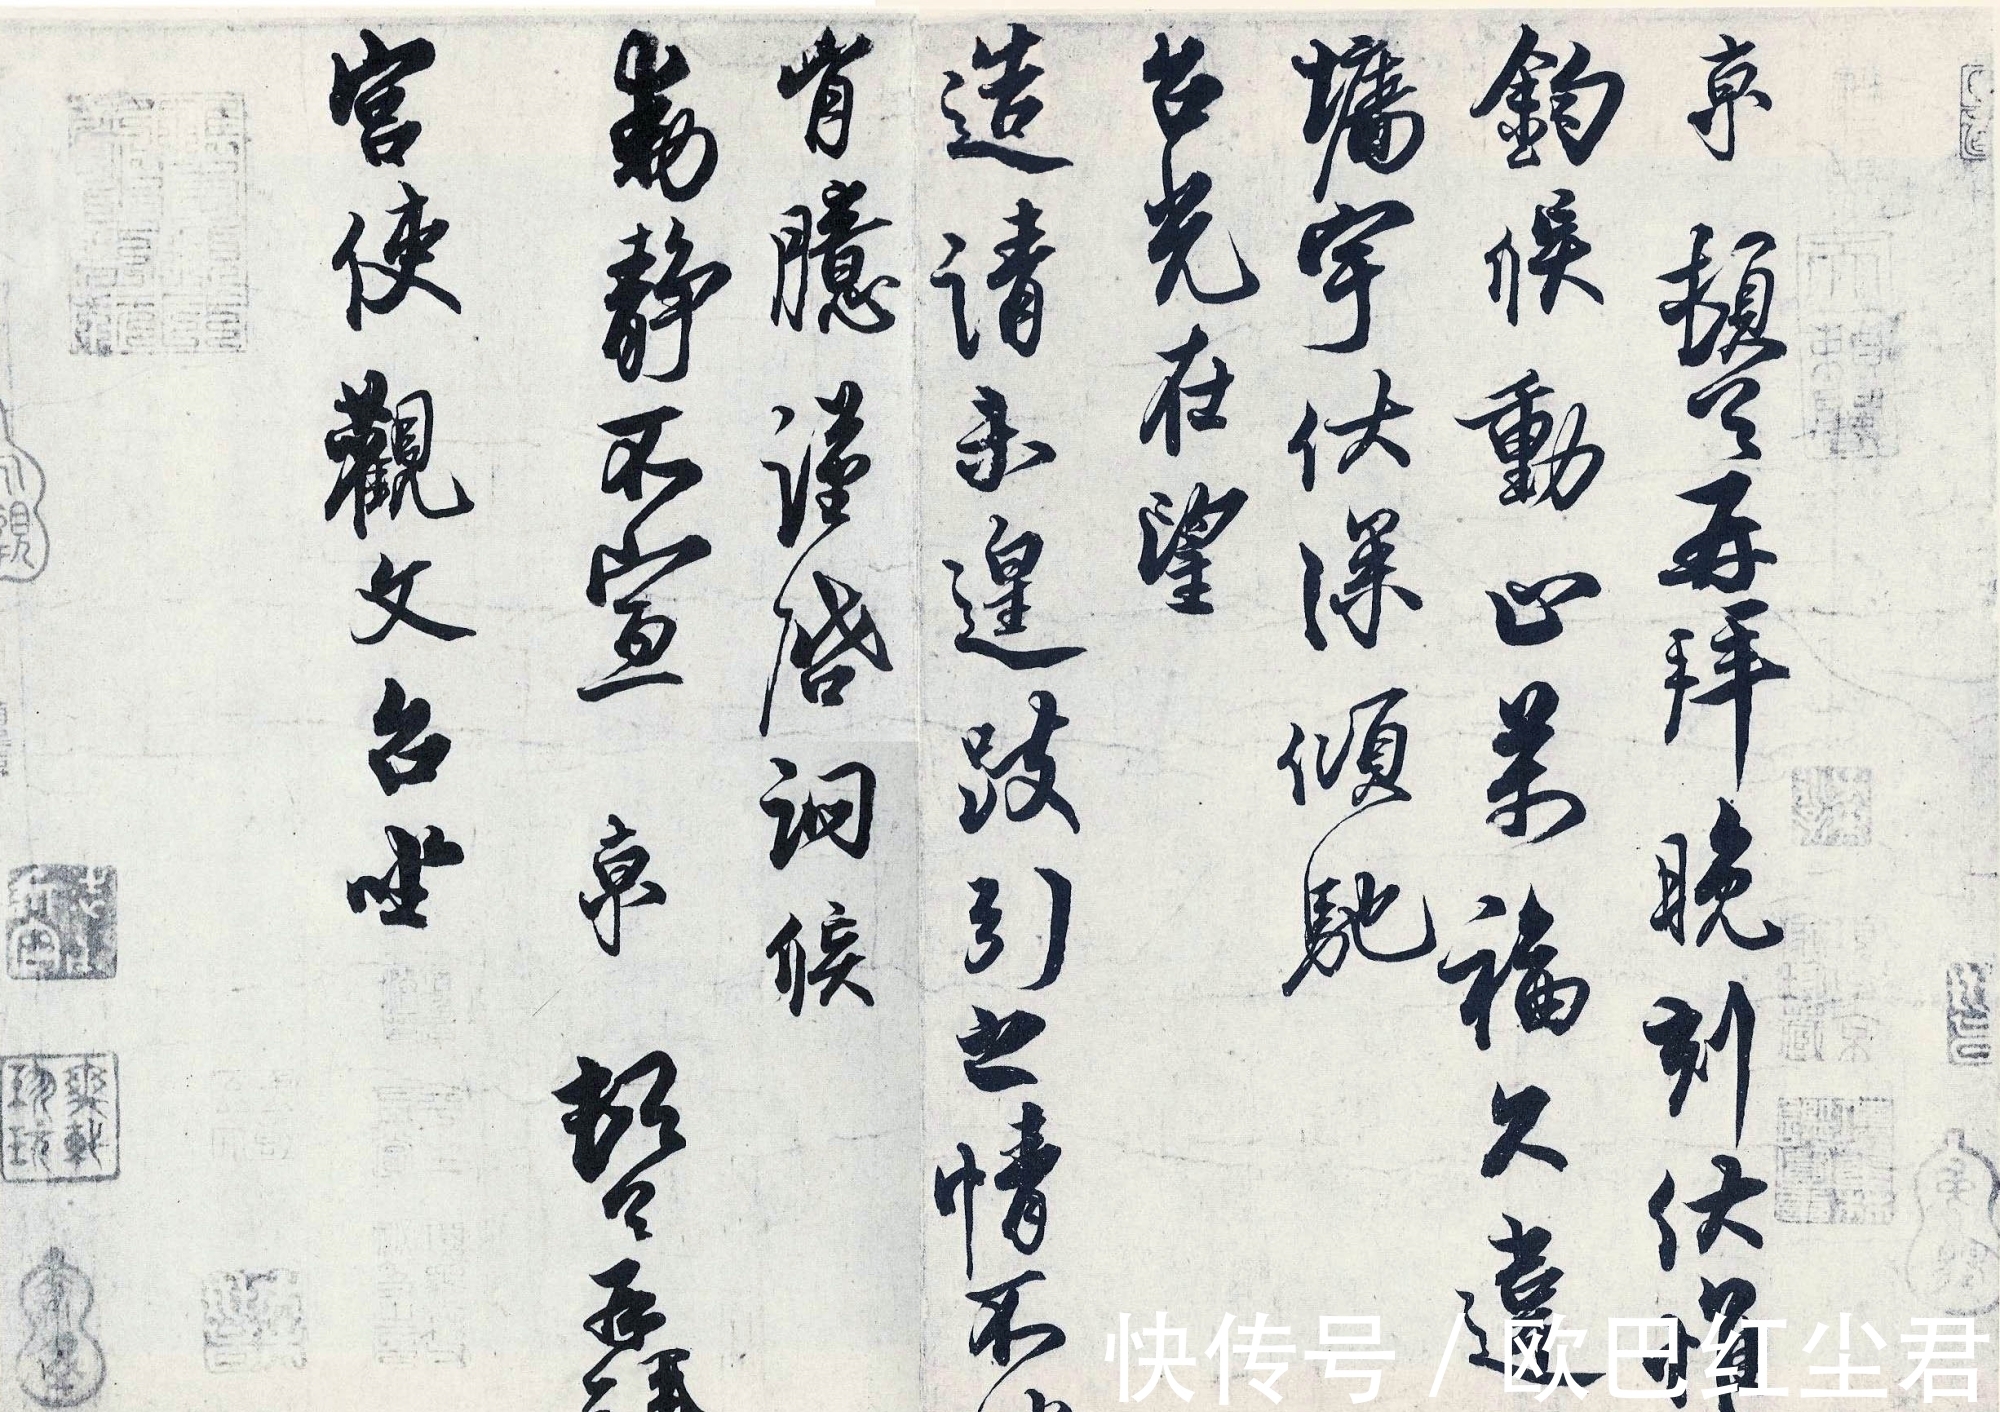 京頓首再拜晚刻伏惟
鈞候動止萬福久違
墉宇伏深傾馳
台光在望
造請未遑跂引之情不
胷臆謹啓詗候
動靜不宣京頓首再拜
宮使觀文台坐
珍玩
快传号 / 欧巴红尘君